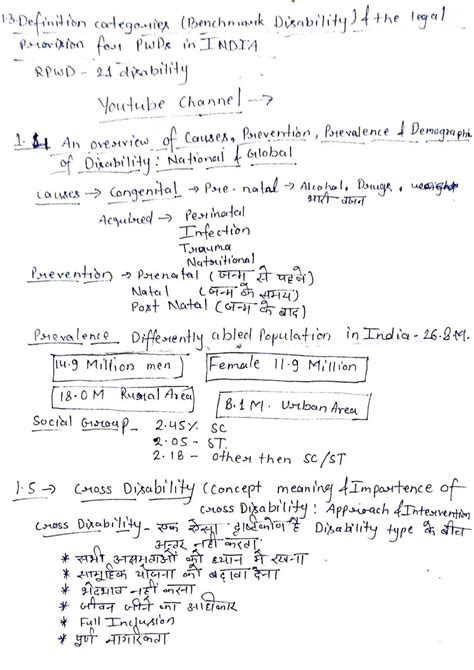 1.3 Definition categories (Benchmark Disability) & the legal
Provision for PWDs in INDIA
RPWD - 21 disability
Youtube Channel →
1.4 An overview of Causes, Prevention, Prevalence & Demographic
of Disability: National & Global
Causes → Congenital → Pre-natal → Alcohol, Drugs,
भारी वजन
Acquired → Perinatal
Infection
Trauma
Nutritional
Prevention → Prenatal (जन्म से पहले)
Natal (जन्म के समय)
Post Natal (जन्म के बाद)
Prevalence Differently abled Population in India - 26.8 M.
14.9 Million men Female 11.9 Million
18.0 M Rural Area 8.1 M. Urban Area
Social Group - 2.45% SC
2.05 - ST.
2.18 - other then SC/ST
1.5 → Cross Disability (Concept meaning & Impartence of
Cross Disability: Approach & Intervention
Cross Disability - एक ऐसा दृष्टिकोण है Disability type के बीच
अन्तर नहीं करता
* सभी असमताओं को ध्यान में रखना
* सामूहिक योजना को बढ़ावा देना
* भेदभाव नहीं करना
* जीवन जीने का अधिकार
* Full Inclusion
* पूर्ण नागरिकता